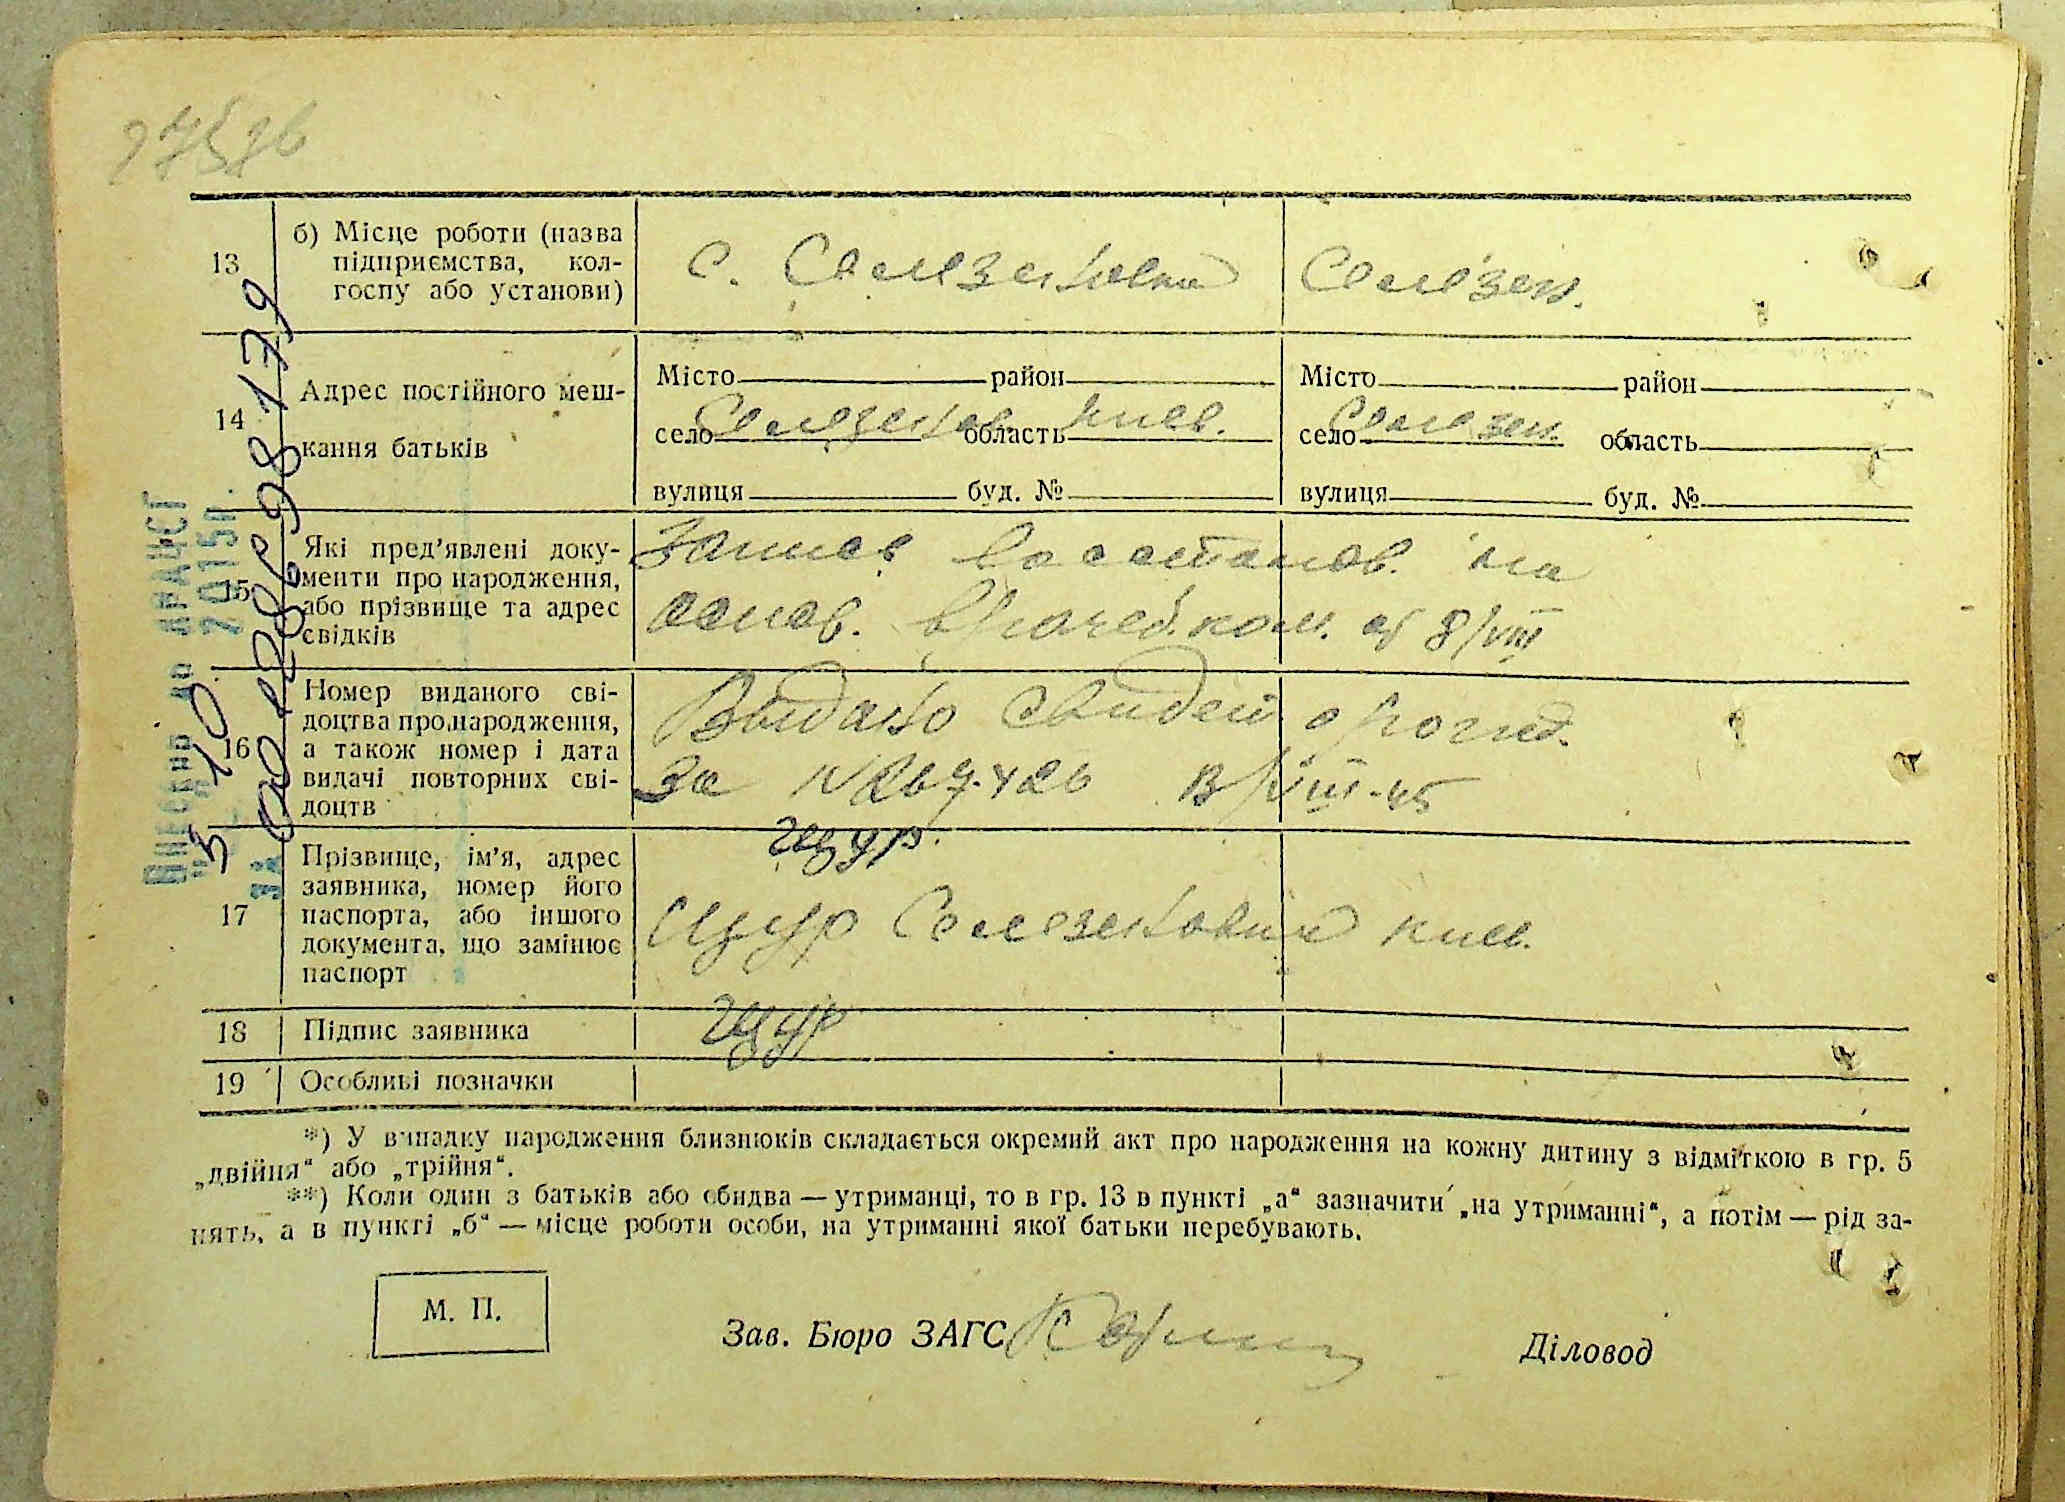 13
б) Місце роботи (назва
підприємства, кол-
госпу або установи)
с. Селезеновка
Селезен.
14
Адрес постійного меш-
кання батьків
Місто район
село Селезенов. область Киев.
вулиця буд. №
Місто район
село Селезен. область
вулиця буд. №
15
Які пред’явлені доку-
менти про народження,
або прізвище та адрес
свідків
Запись восстанов. на
основ. врачеб. ком. от 8/VIII
16
Номер виданого сві-
доцтва про народження,
а також номер і дата
видачі повторних сві-
доцтв
Выдано свидет. о рожд.
За №
VIII-45
Щур.
17
Прізвище, ім’я, адрес
заявника, номер його
паспорта, або іншого
документа, що замінює
паспорт
Щур Селезеновка Киев.
18
Підпис заявника
Щур
19
Особливі позначки
*) У випадку народження близнюків складається окремий акт про народження на кожну дитину з відміткою в гр. 5
„двійня“ або „трійня“.
**) Коли один з батьків або обидва — утриманці, то в гр. 13 в пункті „а“ зазначити „на утриманні“, а потім — рід за-
нять, а в пункті „б“ — місце роботи особи, на утриманні якої батьки перебувають.
М. П.
Зав. Бюро ЗАГС
Діловод
Внесено до ДРАЦСГ
3 10 2015р.
за